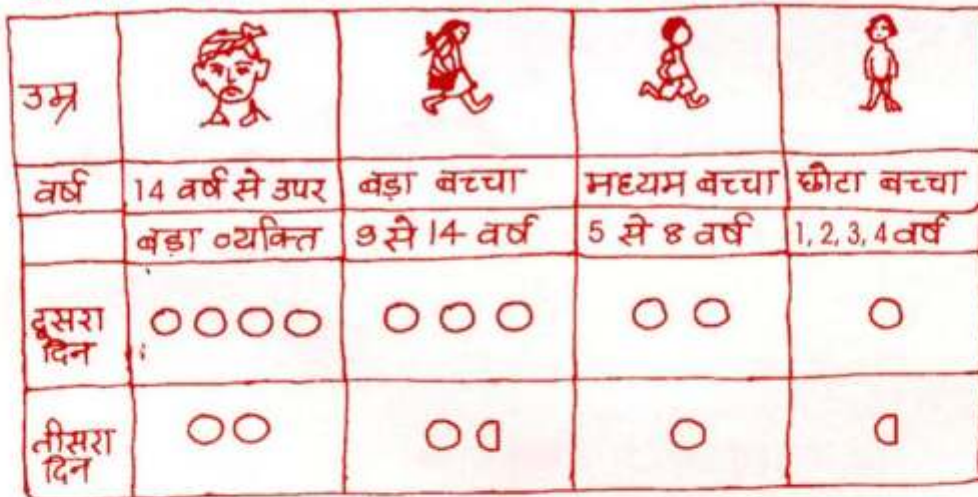 उम्र
वर्ष 14 वर्ष से उपर बड़ा बच्चा मध्यम बच्चा छोटा बच्चा
बड़ा व्यक्ति 9 से 14 वर्ष 5 से 8 वर्ष 1, 2, 3, 4 वर्ष
दूसरा
दिन
तीसरा
दिन